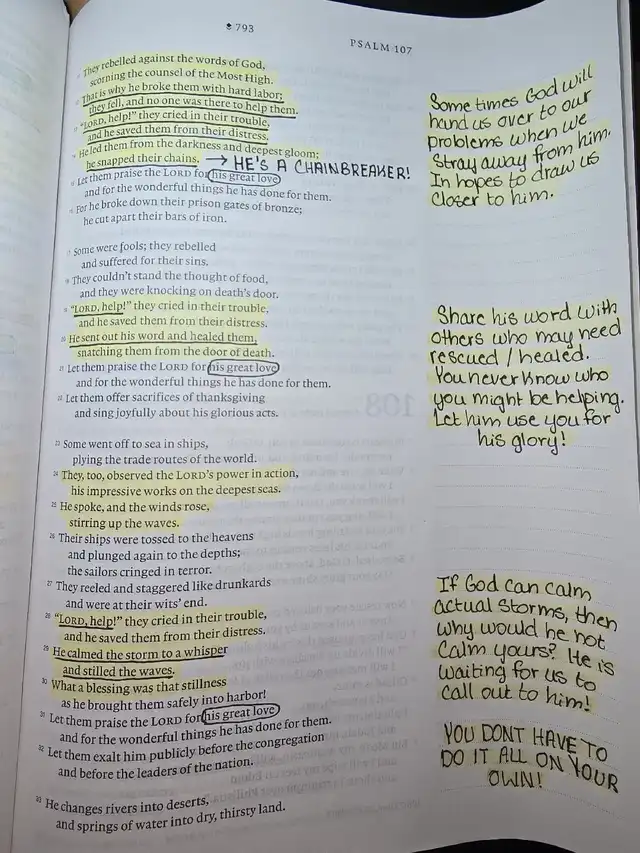 793
PSALM 107
11 They rebelled against the words of God,
scorning the counsel of the Most High.
12 That is why he broke them with hard labor;
they fell, and no one was there to help them.
13 “LORD, help!” they cried in their trouble,
and he saved them from their distress.
14 He led them from the darkness and deepest gloom;
he snapped their chains. → HE'S A CHAINBREAKER!
15 Let them praise the LORD for his great love
and for the wonderful things he has done for them.
16 For he broke down their prison gates of bronze;
he cut apart their bars of iron.
17 Some were fools; they rebelled
and suffered for their sins.
18 They couldn’t stand the thought of food,
and they were knocking on death’s door.
19 “LORD, help!” they cried in their trouble,
and he saved them from their distress.
20 He sent out his word and healed them,
snatching them from the door of death.
21 Let them praise the LORD for his great love
and for the wonderful things he has done for them.
22 Let them offer sacrifices of thanksgiving
and sing joyfully about his glorious acts.
23 Some went off to sea in ships,
plying the trade routes of the world.
24 They, too, observed the LORD’s power in action,
his impressive works on the deepest seas.
25 He spoke, and the winds rose,
stirring up the waves.
26 Their ships were tossed to the heavens
and plunged again to the depths;
the sailors cringed in terror.
27 They reeled and staggered like drunkards
and were at their wits’ end.
28 “LORD, help!” they cried in their trouble,
and he saved them from their distress.
29 He calmed the storm to a whisper
and stilled the waves.
30 What a blessing was that stillness
as he brought them safely into harbor!
31 Let them praise the LORD for his great love
and for the wonderful things he has done for them.
32 Let them exalt him publicly before the congregation
and before the leaders of the nation.
33 He changes rivers into deserts,
and springs of water into dry, thirsty land.
Some times God will
hand us over to our
problems when we
stray away from him.
In hopes to draw us
closer to him.
Share his word with
others who may need
rescued / healed.
You never know who
you might be helping.
Let him use you for
his glory!
If God can calm
actual storms, then
why would he not
calm yours? He is
waiting for us to
call out to him!
YOU DONT HAVE TO
DO IT ALL ON YOUR
OWN!